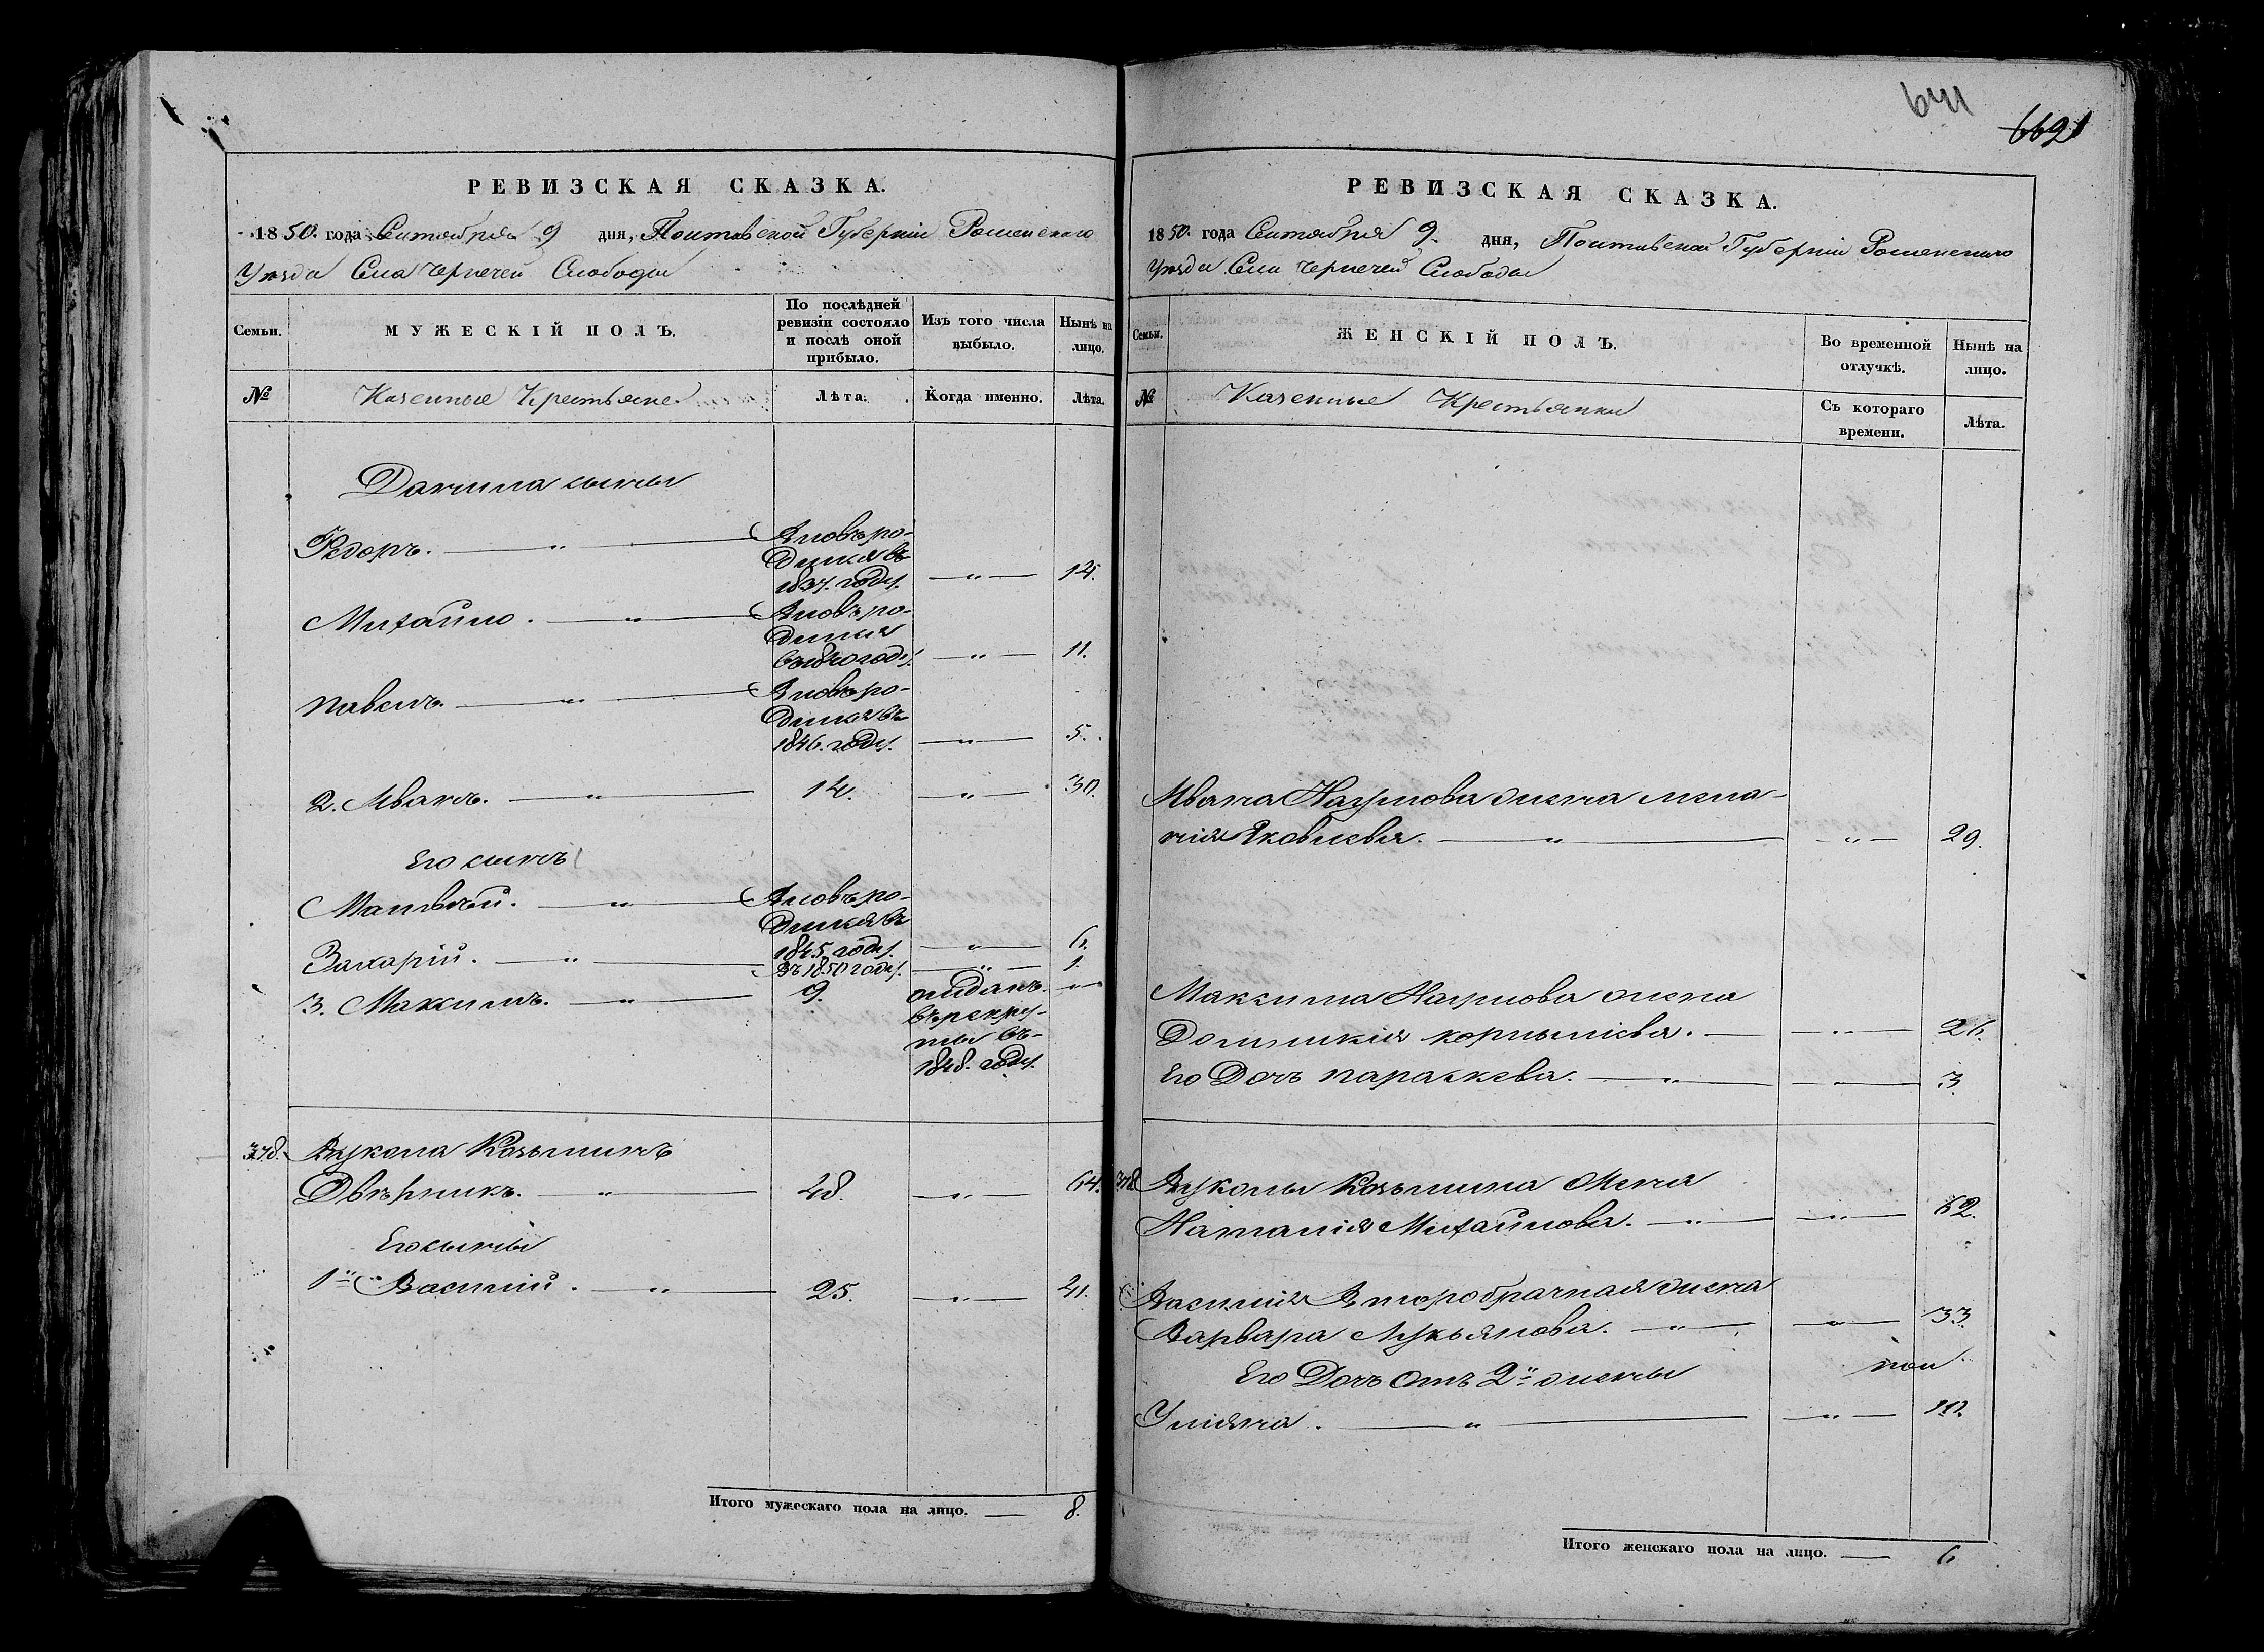 641
6621
РЕВИЗСКАЯ СКАЗКА.
1850. года Сентября 9 дня, Полтавской Губернiи Роменскаго
Уѣзда Села Чернечей Слободы
Семьи.
МУЖЕСКІЙ ПОЛЪ.
По послѣдней ревизіи состояло и послѣ оной прибыло.
Изъ того числа выбыло.
Нынѣ на лицо.
№
Казенные Крестьяне.
Лѣта.
Когда именно.
Лѣта.
Данила сыны
Федоръ. — " — Вновь ро-
дился въ
1837. году. — " — 14.
Михайло. — " — Вновь ро-
дился
въ 1840 году. — " — 11.
Павелъ. — " — Вновь ро-
дился въ
1846. году. — " — 5.
2. Иванъ. — " — 14. — " — 30.
Его сынъ
Матвѣй. — " — Вновь ро-
дился въ
1845. году. — " — 6.
Захарій. — " — Въ 1850 году. — " — 1.
3. Максимъ. — " — 9. отданъ — " —
въ рекру-
ты въ
1848. году.
378. Вукола Козьминъ
Двѣрникъ. — " — 48. — " — 64.
Его сыны
1й Василій. — " — 25. — " — 41.
Итого мужескаго пола на лицо. — 8.
РЕВИЗСКАЯ СКАЗКА.
1850. года Сентября 9. дня, Полтавской Губерніи Роменскаго
Уѣзда Села Чернечей Слободы
Семьи.
ЖЕНСКІЙ ПОЛЪ.
Во временной отлучкѣ.
Нынѣ на лицо.
№
Казенные Крестьянки
Съ котораго времени.
Лѣта.
Ивана Наумова жена Мела-
нія Яковлева. — " — — " — 29.
Максима Наумова жена
Домникія Корныліева. — — " — 26.
Его Дочь Параскева. — " — — " — 3.
378. Вуколы Козьмина Жена
Наталія Михайлова. — " — — " — 62.
Василія Второбрачная жена
Варвара Лукьянова. — " — — " — 33.
Его Дочь отъ 2й жены
Уліяна. — " — — " —
Итого женскаго пола на лицо. — 6